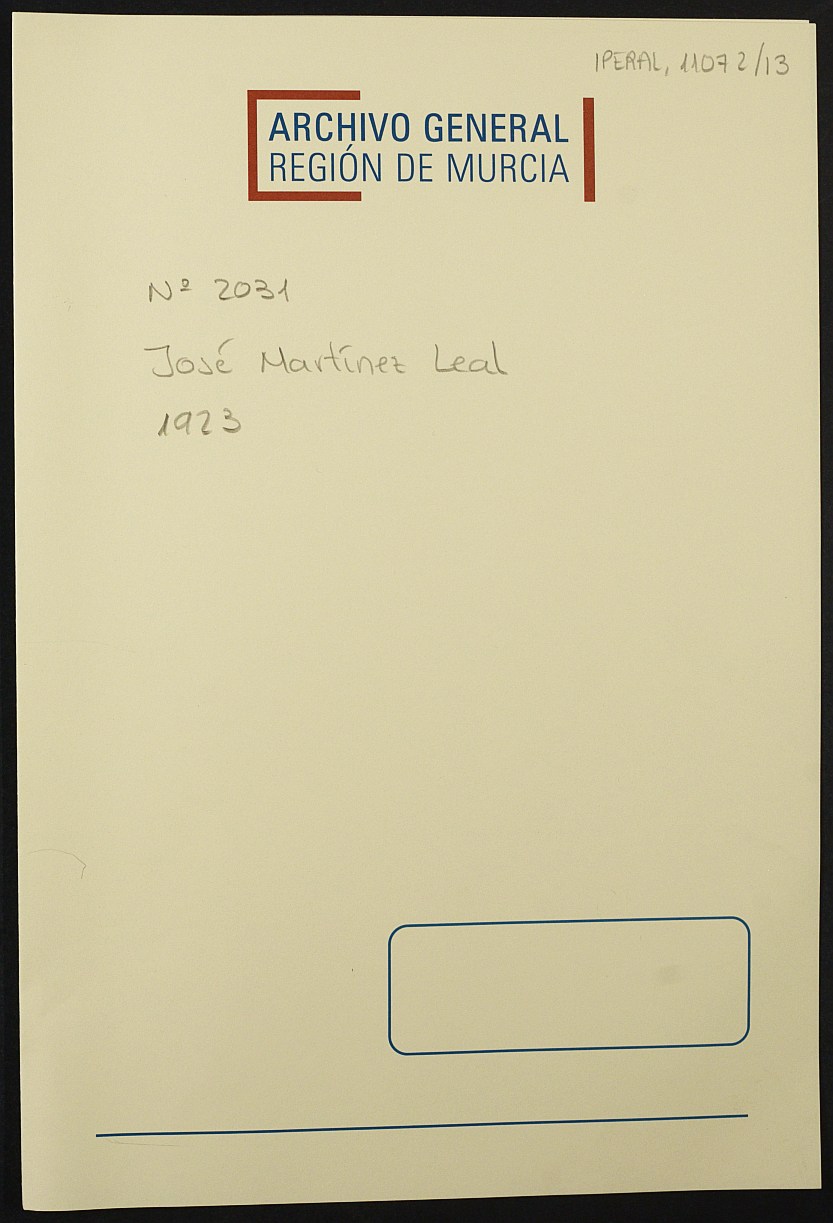 IPERAL, 11072/13
ARCHIVO GENERAL
REGIÓN DE MURCIA
Nº 2031
José Martínez Leal
1923